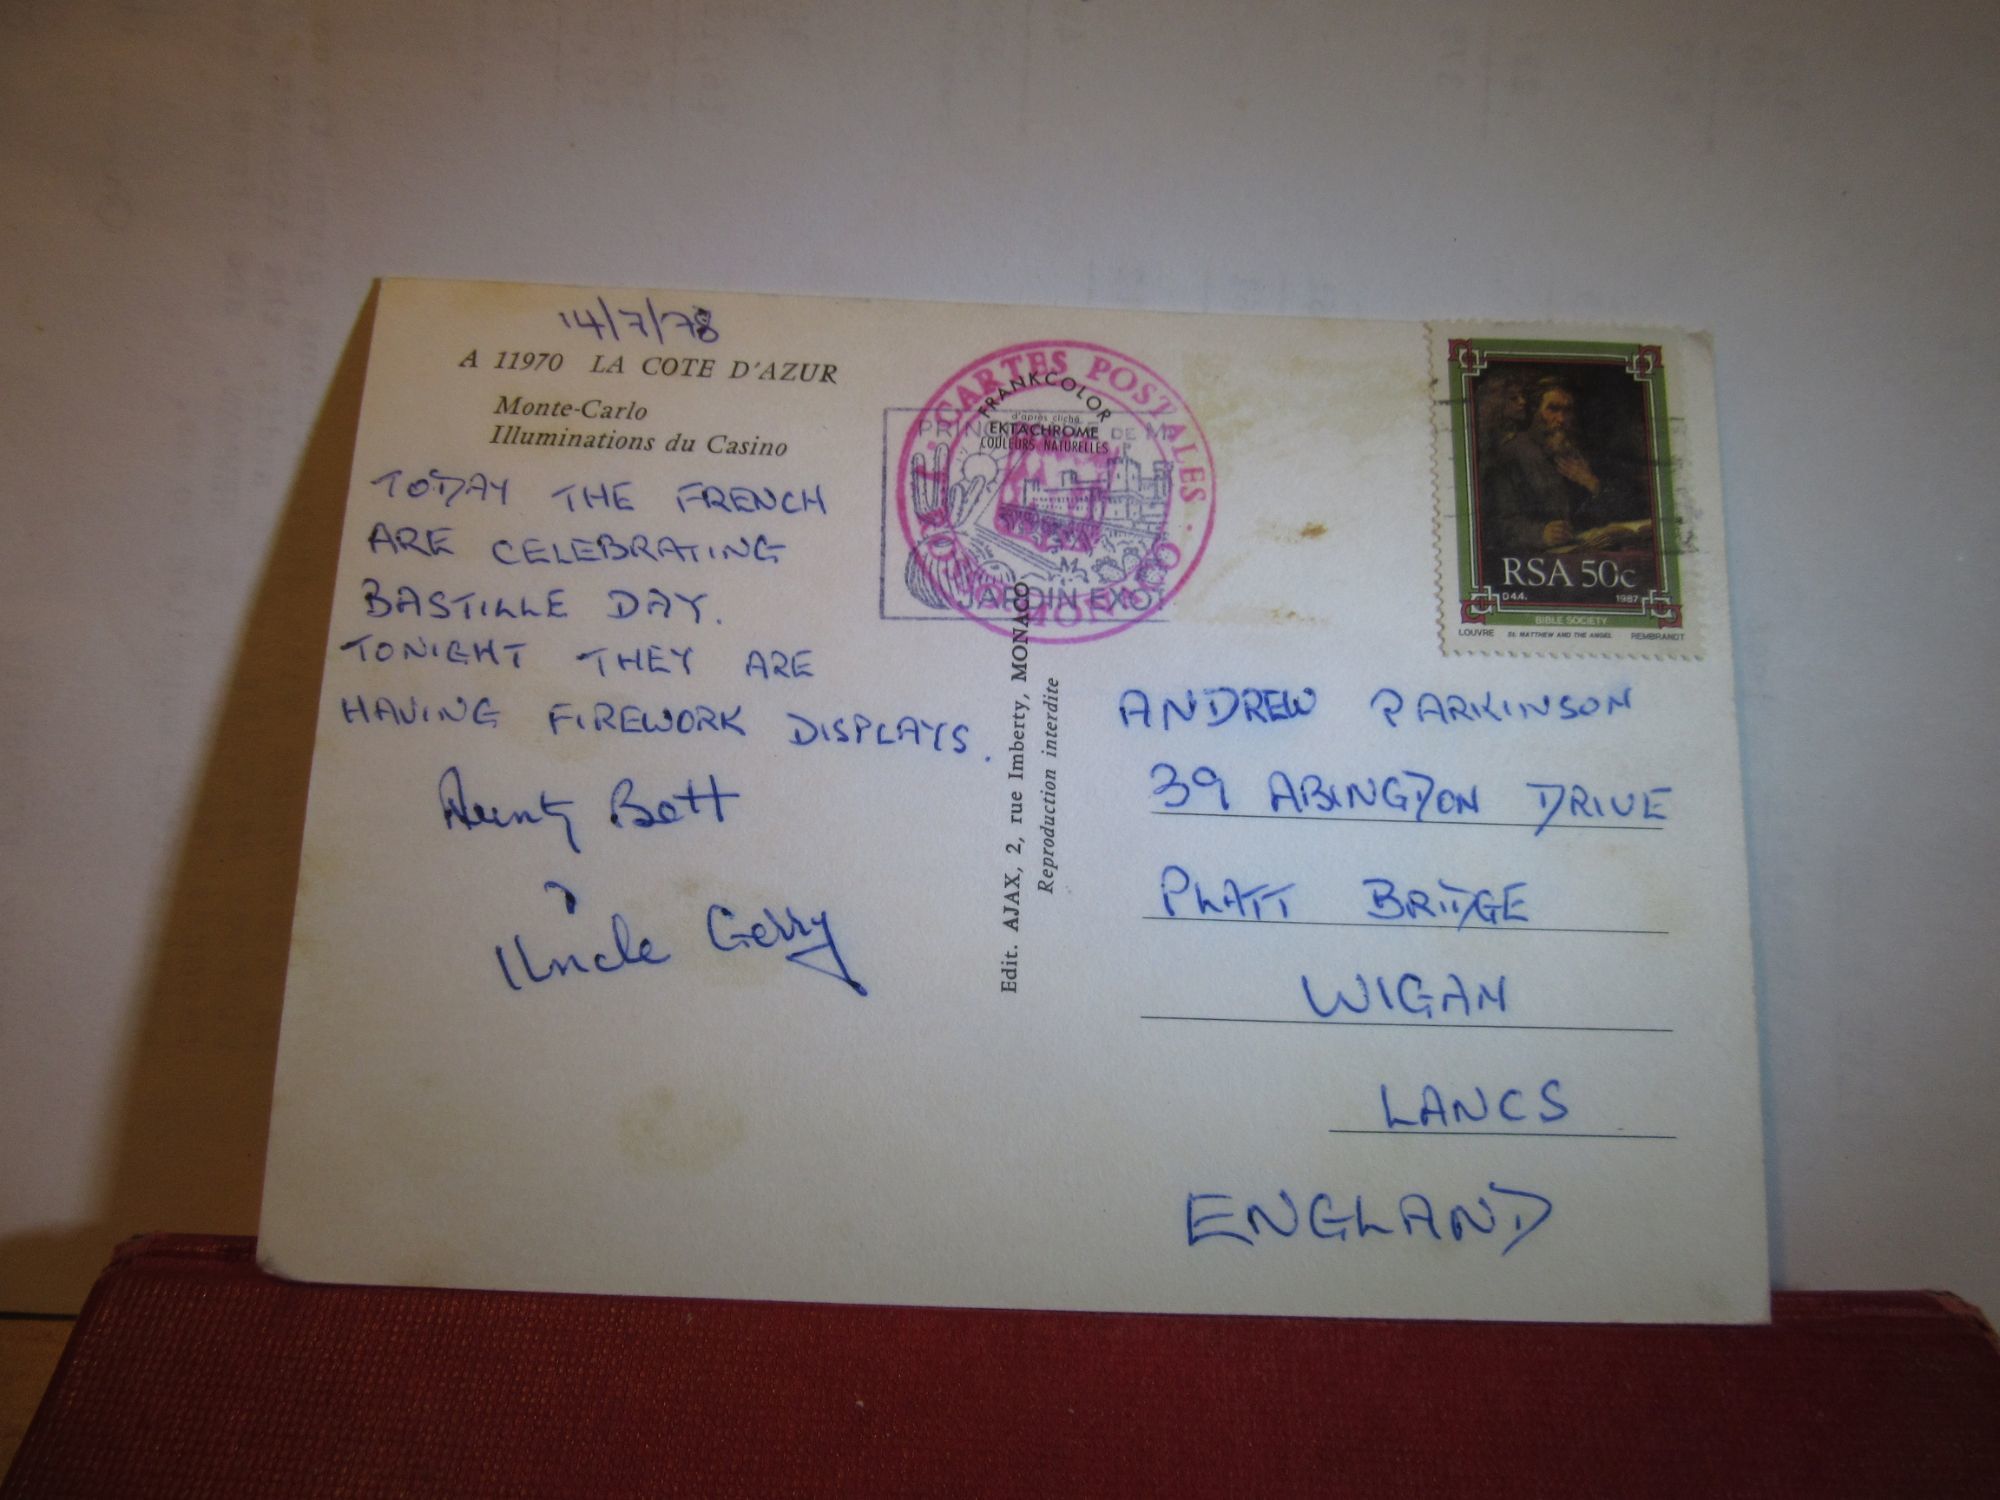 14/7/78
A 11970 LA COTE D'AZUR
Monte-Carlo
Illuminations du Casino
TODAY THE FRENCH
ARE CELEBRATING
BASTILLE DAY.
TONIGHT THEY ARE
HAVING FIREWORK DISPLAYS.
Aunty Bett
Uncle Gerry
CARTES POSTALES
MONACO
FRANKCOLOR
d'après cliché
EKTACHROME
COULEURS NATURELLES
DE
JARDIN
Edit. AJAX, 2, rue Imberty, MONACO
Reproduction interdite
RSA 50c
D4.4. 1987
BIBLE SOCIETY
LOUVRE St. MATTHEW AND THE ANGEL REMBRANDT
ANDREW PARKINSON
39 ABINGDON DRIVE
PLATT BRIDGE
WIGAN
LANCS
ENGLAND